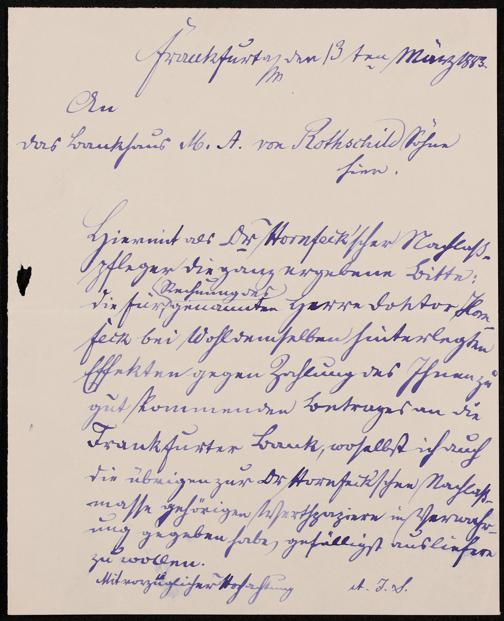 Frankfurt a/M, den 13ten März 1883.
An
das Bankhaus M. A. von Rothschild Söhne
hier.
Hiermit als Dr Hornfeck'scher Nachlaß-
pfleger die ganz ergebene Bitte:
die für Rechnung des genannten Herrn Doktor Horn-
feck bei Wohldemselben hinterlegten
Effekten gegen Zahlung des Ihnen zu
gut kommenden Betrages an die
Frankfurter Bank, woselbst ich auch
die übrigen zur Dr Hornfeck'schen Nachlaß-
masse gehörigen Werthpapiere in Verwahr-
ung gegeben habe, gefälligst ausliefern
zu wollen.
Mit vorzüglicher Hochachtung